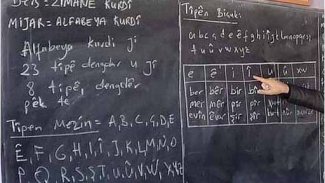 Ders = ZIMANÊ KURDÎ
MIJAR = ALFABEYA KURDÎ
Alfabeya kurdî ji
23 tîpê dengdar û ji
8 tîpê, dengdêr
pêk tê
Tîpên Mezin = A, B, C, Ç, D, E
Ê, F, G, H, I, Î, J, K, L, M, N, O
P, Q, R, S, Ş, T, U, Û, V, W, X, Y, Z
Tîpên Biçûk:
a b c ç d e ê f g h i î j k l m n o p q r s ş
t u û v w x y z
e ê i î u û xw
ber bêr bir bîr
mer mêr
evîn